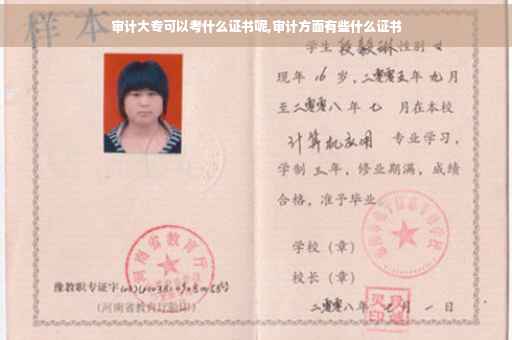 审计大专可以考什么证书呢,审计方面有些什么证书
样本
学生 段毅琳 性别 女
现年 16 岁,二零零五年 九 月
至二零零八年 七 月在本校
计算机应用 专业学习,
学制 三 年,修业期满,成绩
合格,准予毕业
学校(章)
校长(章)
二零零八年 七 月 一 日
河南省教育厅
豫教职专证字
(河南省教育厅验印)